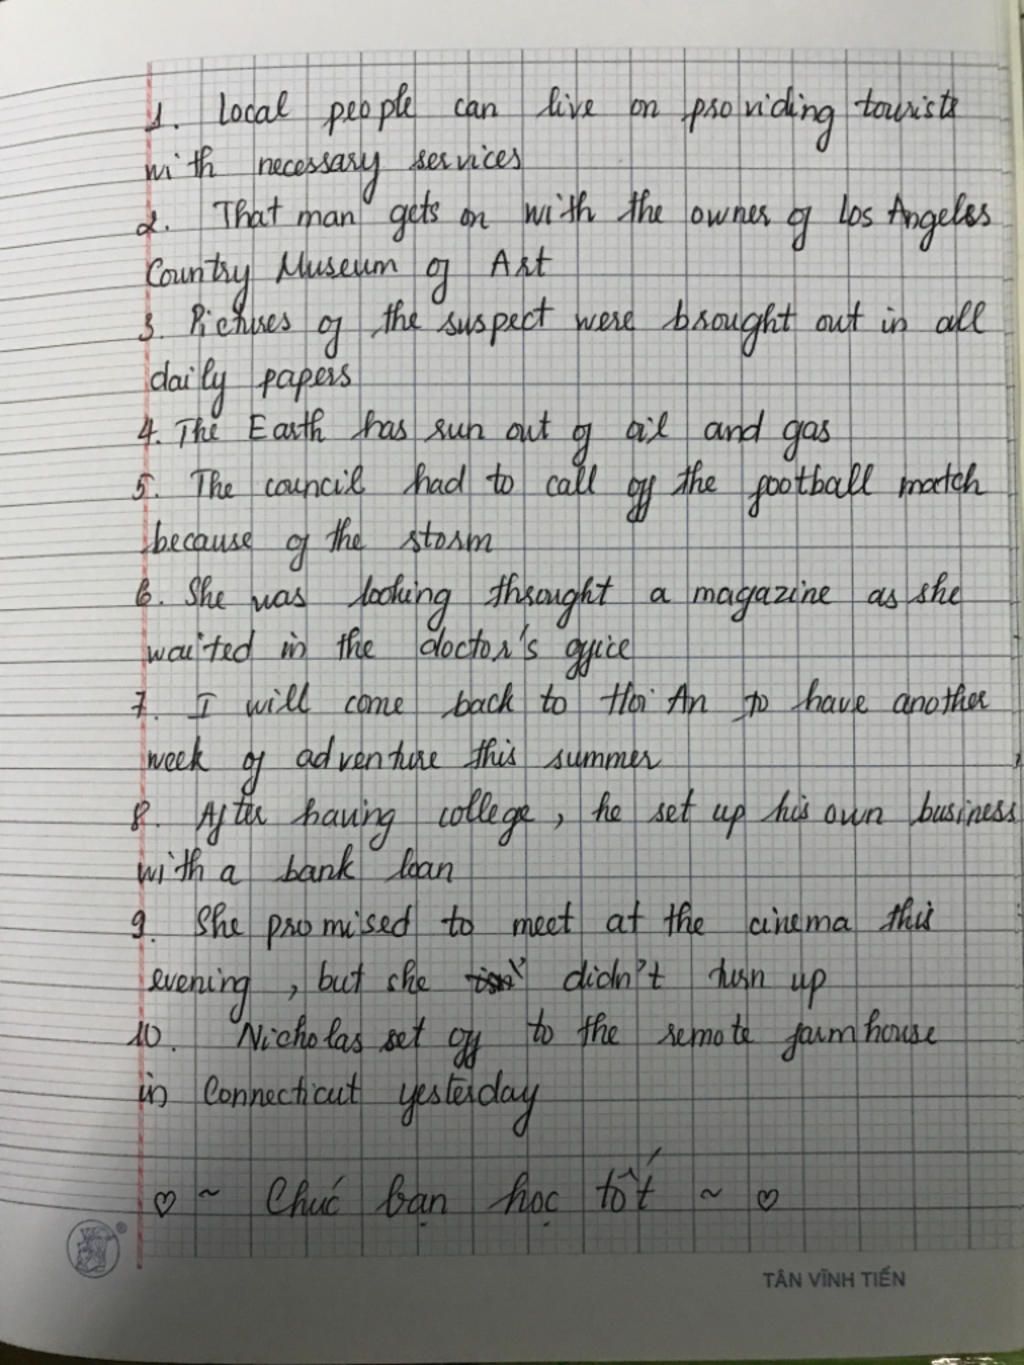 1. Local people can live on providing tourists
with necessary services
2. That man gets on with the owner of Los Angeles
Country Museum of Art
3. Pictures of the suspect were brought out in all
daily papers
4. The Earth has run out of oil and gas
5. The council had to call off the football match
because of the storm
6. She was looking throught a magazine as she
waited in the doctor's office
7. I will come back to Hoi An to have another
week of adventure this summer
8. After having college, he set up his own business
with a bank loan
9. She promised to meet at the cinema this
evening, but she didn't turn up
10. Nicholas set off to the remote farmhouse
in Connecticut yesterday
♡ ~ Chúc bạn học tốt ~ ♡
TÂN VĨNH TIẾN